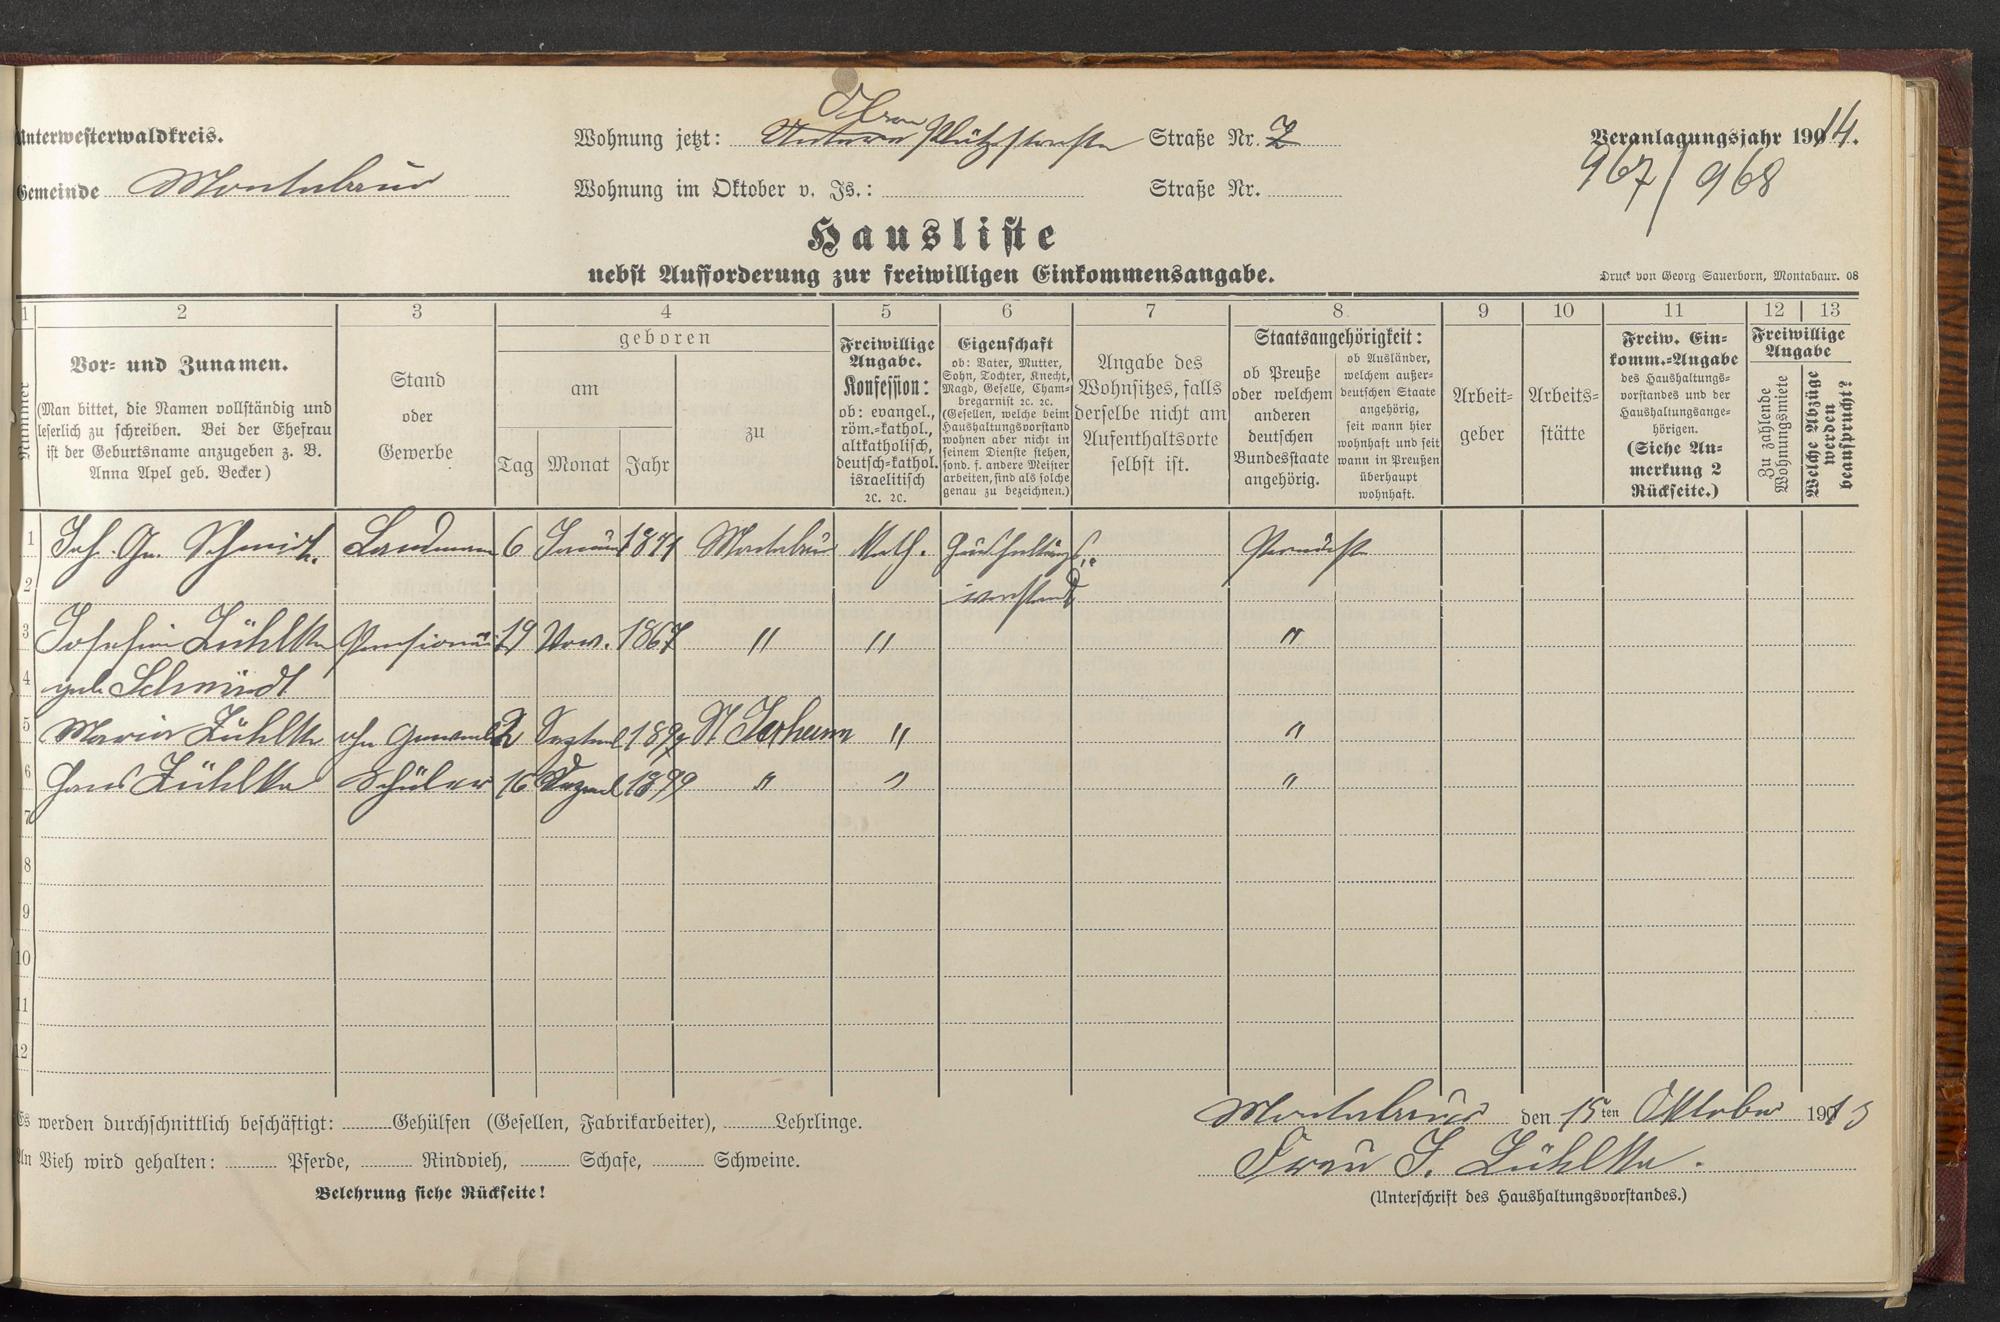 Unterwesterwaldkreis.
Wohnung jetzt: Obere Plötzstraße Straße Nr. 2
Veranlagungsjahr 1914.
Gemeinde Montabaur
Wohnung im Oktober v. Js.: Straße Nr.
967/968
Hausliste
nebst Aufforderung zur freiwilligen Einkommensangabe.
Druck von Georg Sauerborn, Montabaur. 08
1 2 3 4 5 6 7 8 9 10 11 12 13
Nummer
Vor- und Zunamen.
(Man bittet, die Namen vollständig und
leserlich zu schreiben. Bei der Ehefrau
ist der Geburtsname anzugeben z. B.
Anna Apel geb. Becker)
Stand
oder
Gewerbe
geboren
am
Tag Monat Jahr
zu
Freiwillige
Angabe.
Konfession:
ob: evangel.,
röm.-kathol.,
altkatholisch,
deutsch-kathol.
israelitisch
2c. 2c.
Eigenschaft
ob: Vater, Mutter,
Sohn, Tochter, Knecht,
Magd, Geselle, Cham-
bregarnist 2c. 2c.
(Gesellen, welche beim
Haushaltungsvorstand
wohnen aber nicht in
seinem Dienste stehen,
sond. f. andere Meister
arbeiten, sind als solche
genau zu bezeichnen.)
Angabe des
Wohnsitzes, falls
derselbe nicht am
Aufenthaltsorte
selbst ist.
Staatsangehörigkeit:
ob Preuße
oder welchem
anderen
deutschen
Bundesstaate
angehörig.
ob Ausländer,
welchem außer-
deutschen Staate
angehörig,
seit wann hier
wohnhaft und seit
wann in Preußen
überhaupt
wohnhaft.
Arbeit-
geber
Arbeits-
stätte
Freiw. Ein-
komm.-Angabe
des Haushaltungs-
vorstandes und der
Haushaltungsange-
hörigen.
(Siehe An-
merkung 2
Rückseite.)
Freiwillige
Angabe
Zu zahlende
Wohnungsmiete
Welche Abzüge
werden
beansprucht?
1 Joh. Gg. Schmidt. Landmann 6 Januar 1871 Montabaur Kath. Haushaltungs- Preuße
2 vorstand
3 Josefine Lühlke Pensionär 19 Nov. 1867 " " "
4 geb. Schmidt
5 Maria Lühlke ohn Gewerbe 2 Septemb 1897 St Johann " "
6 Hans Lühlke Schüler 16 Dezemb 1899 " " "
7
8
9
10
11
12
Es werden durchschnittlich beschäftigt: Gehülfen (Gesellen, Fabrikarbeiter), Lehrlinge.
Montabaur den 15ten Oktober 1913
An Vieh wird gehalten: Pferde, Rindvieh, Schafe, Schweine.
Frau J. Lühlke.
Belehrung siehe Rückseite!
(Unterschrift des Haushaltungsvorstandes.)